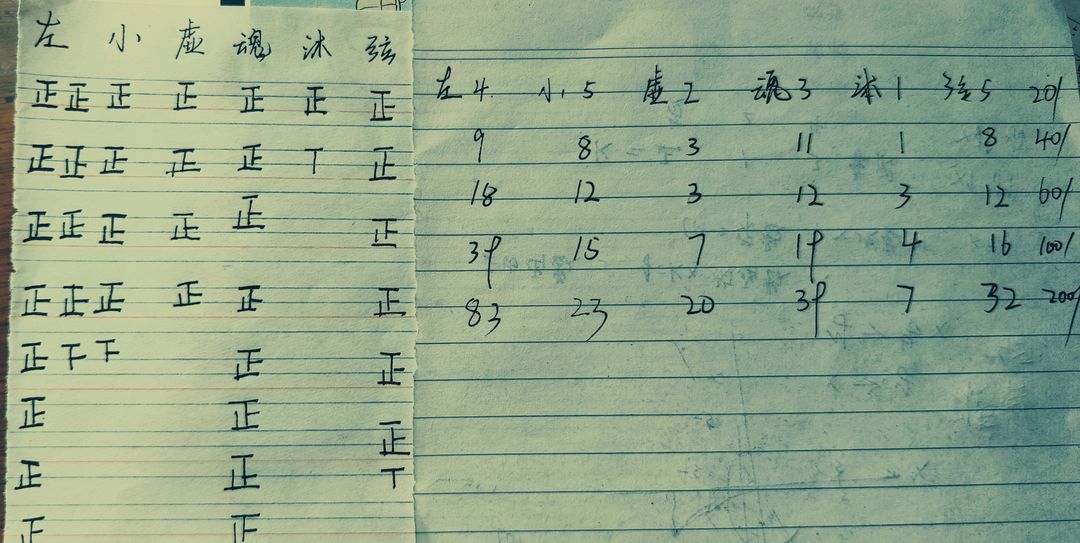 左 小 虚 魂 沐 弦
正 正 正 正 正 正 正
正 正 正 正 正 丅 正
正 正 正 正 正 正
正 正 正 正 正 正
正 下 下 正 正
正 正 正
正 正 丅
正 正
左4 小5 虚2 魂3 沐1 弦5 20%
9 8 3 11 1 8 40%
18 12 3 12 3 12 60%
39 15 7 19 4 16 100%
83 23 20 39 7 32 200%